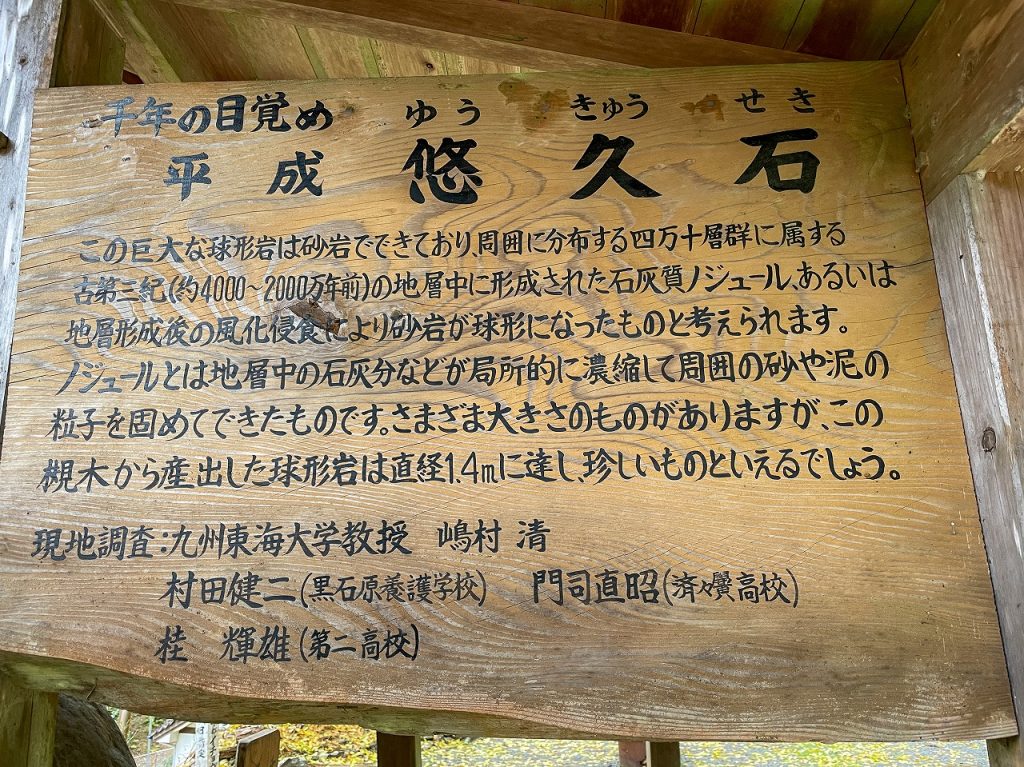 千年の目覚め ゆう きゅう せき
平成 悠久石
この巨大な球形岩は砂岩でできており、周囲に分布する四万十層群に属する
古第三紀(約4000～2000万年前)の地層中に形成された石灰質ノジュール、あるいは
地層形成後の風化侵食により砂岩が球形になったものと考えられます。
ノジュールとは地層中の石灰分などが局所的に濃縮して周囲の砂や泥の
粒子を固めてできたものです。さまざま大きさのものがありますが、この
梘木から産出した球形岩は直経1.4mに達し、珍しいものといえるでしょう。
現地調査:九州東海大学教授 嶋村 清
村田健二(黒石原養護学校) 門司直昭(済々黌高校)
桂 輝雄(第二高校)